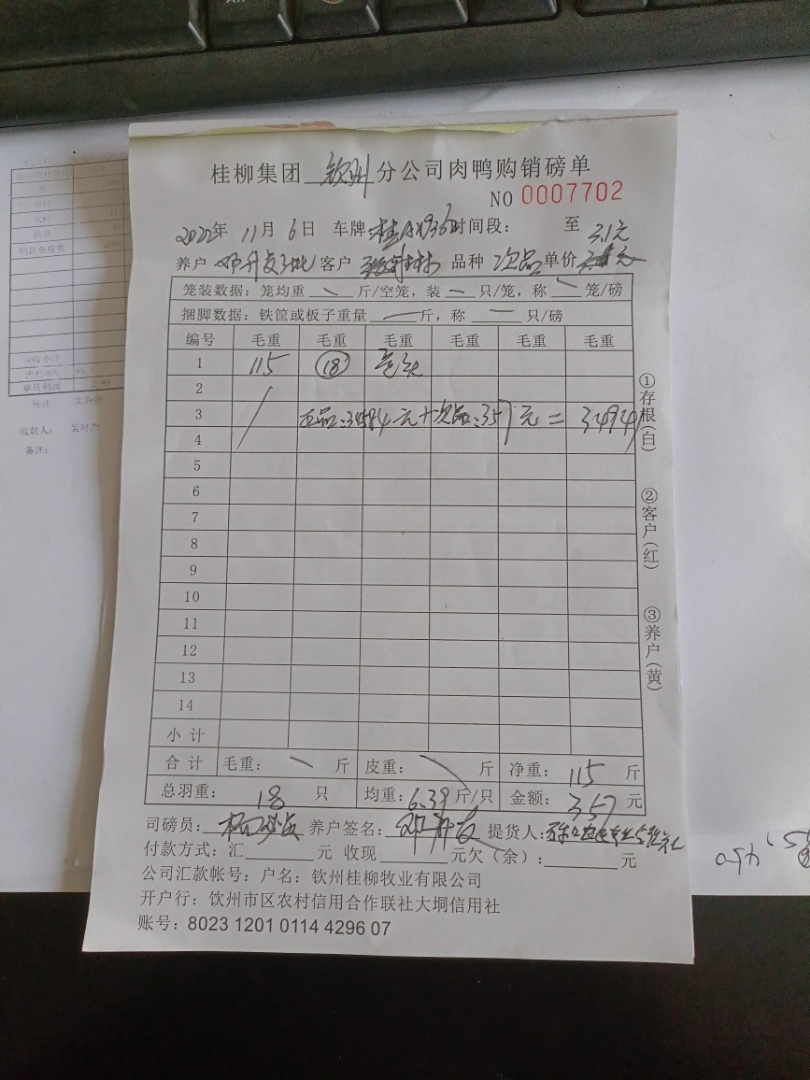 桂柳集团 钦州 分公司肉鸭购销磅单
NO 0007702
2022年 11月 6日 车牌: 桂 时间段: 至 3.1元
养户 邓升发 客户 品种 次品 单价
笼装数据: 笼均重 斤/空笼, 装 只/笼, 称 笼/磅
捆脚数据: 铁筐或板子重量 斤, 称 只/磅
编号 毛重 毛重 毛重 毛重 毛重 毛重
1 115 18
2
3 正品: 34584元+次品: 357元=34941
4
5
6
7
8
9
10
11
12
13
14
小计
合计 毛重: 斤 皮重: 斤 净重: 115 斤
总羽重: 18 只 均重: 6.39 斤/只 金额: 357 元
司磅员: 养户签名: 邓升发 提货人:
付款方式: 汇 元 收现 元欠(余): 元
公司汇款帐号: 户名: 钦州桂柳牧业有限公司
开户行: 钦州市区农村信用合作联社大垌信用社
账号: 8023 1201 0114 4296 07
①存根(白)
②客户(红)
③养户(黄)
收款人:
备注: